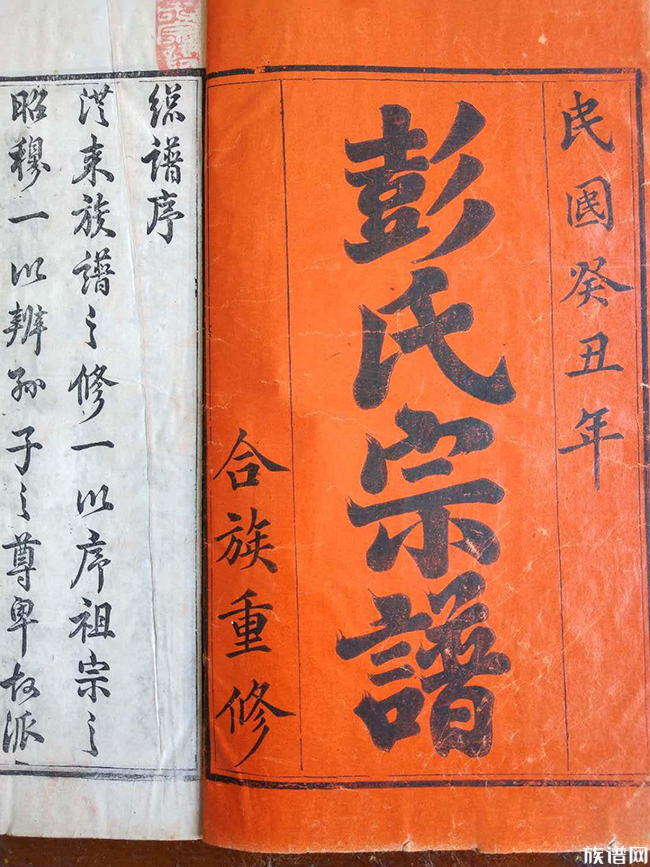 民國癸丑年
彭氏宗譜
合族重修
總譜序
從來族譜之修一以序祖宗之
昭穆一以辨孫子之尊卑故派
族谱网